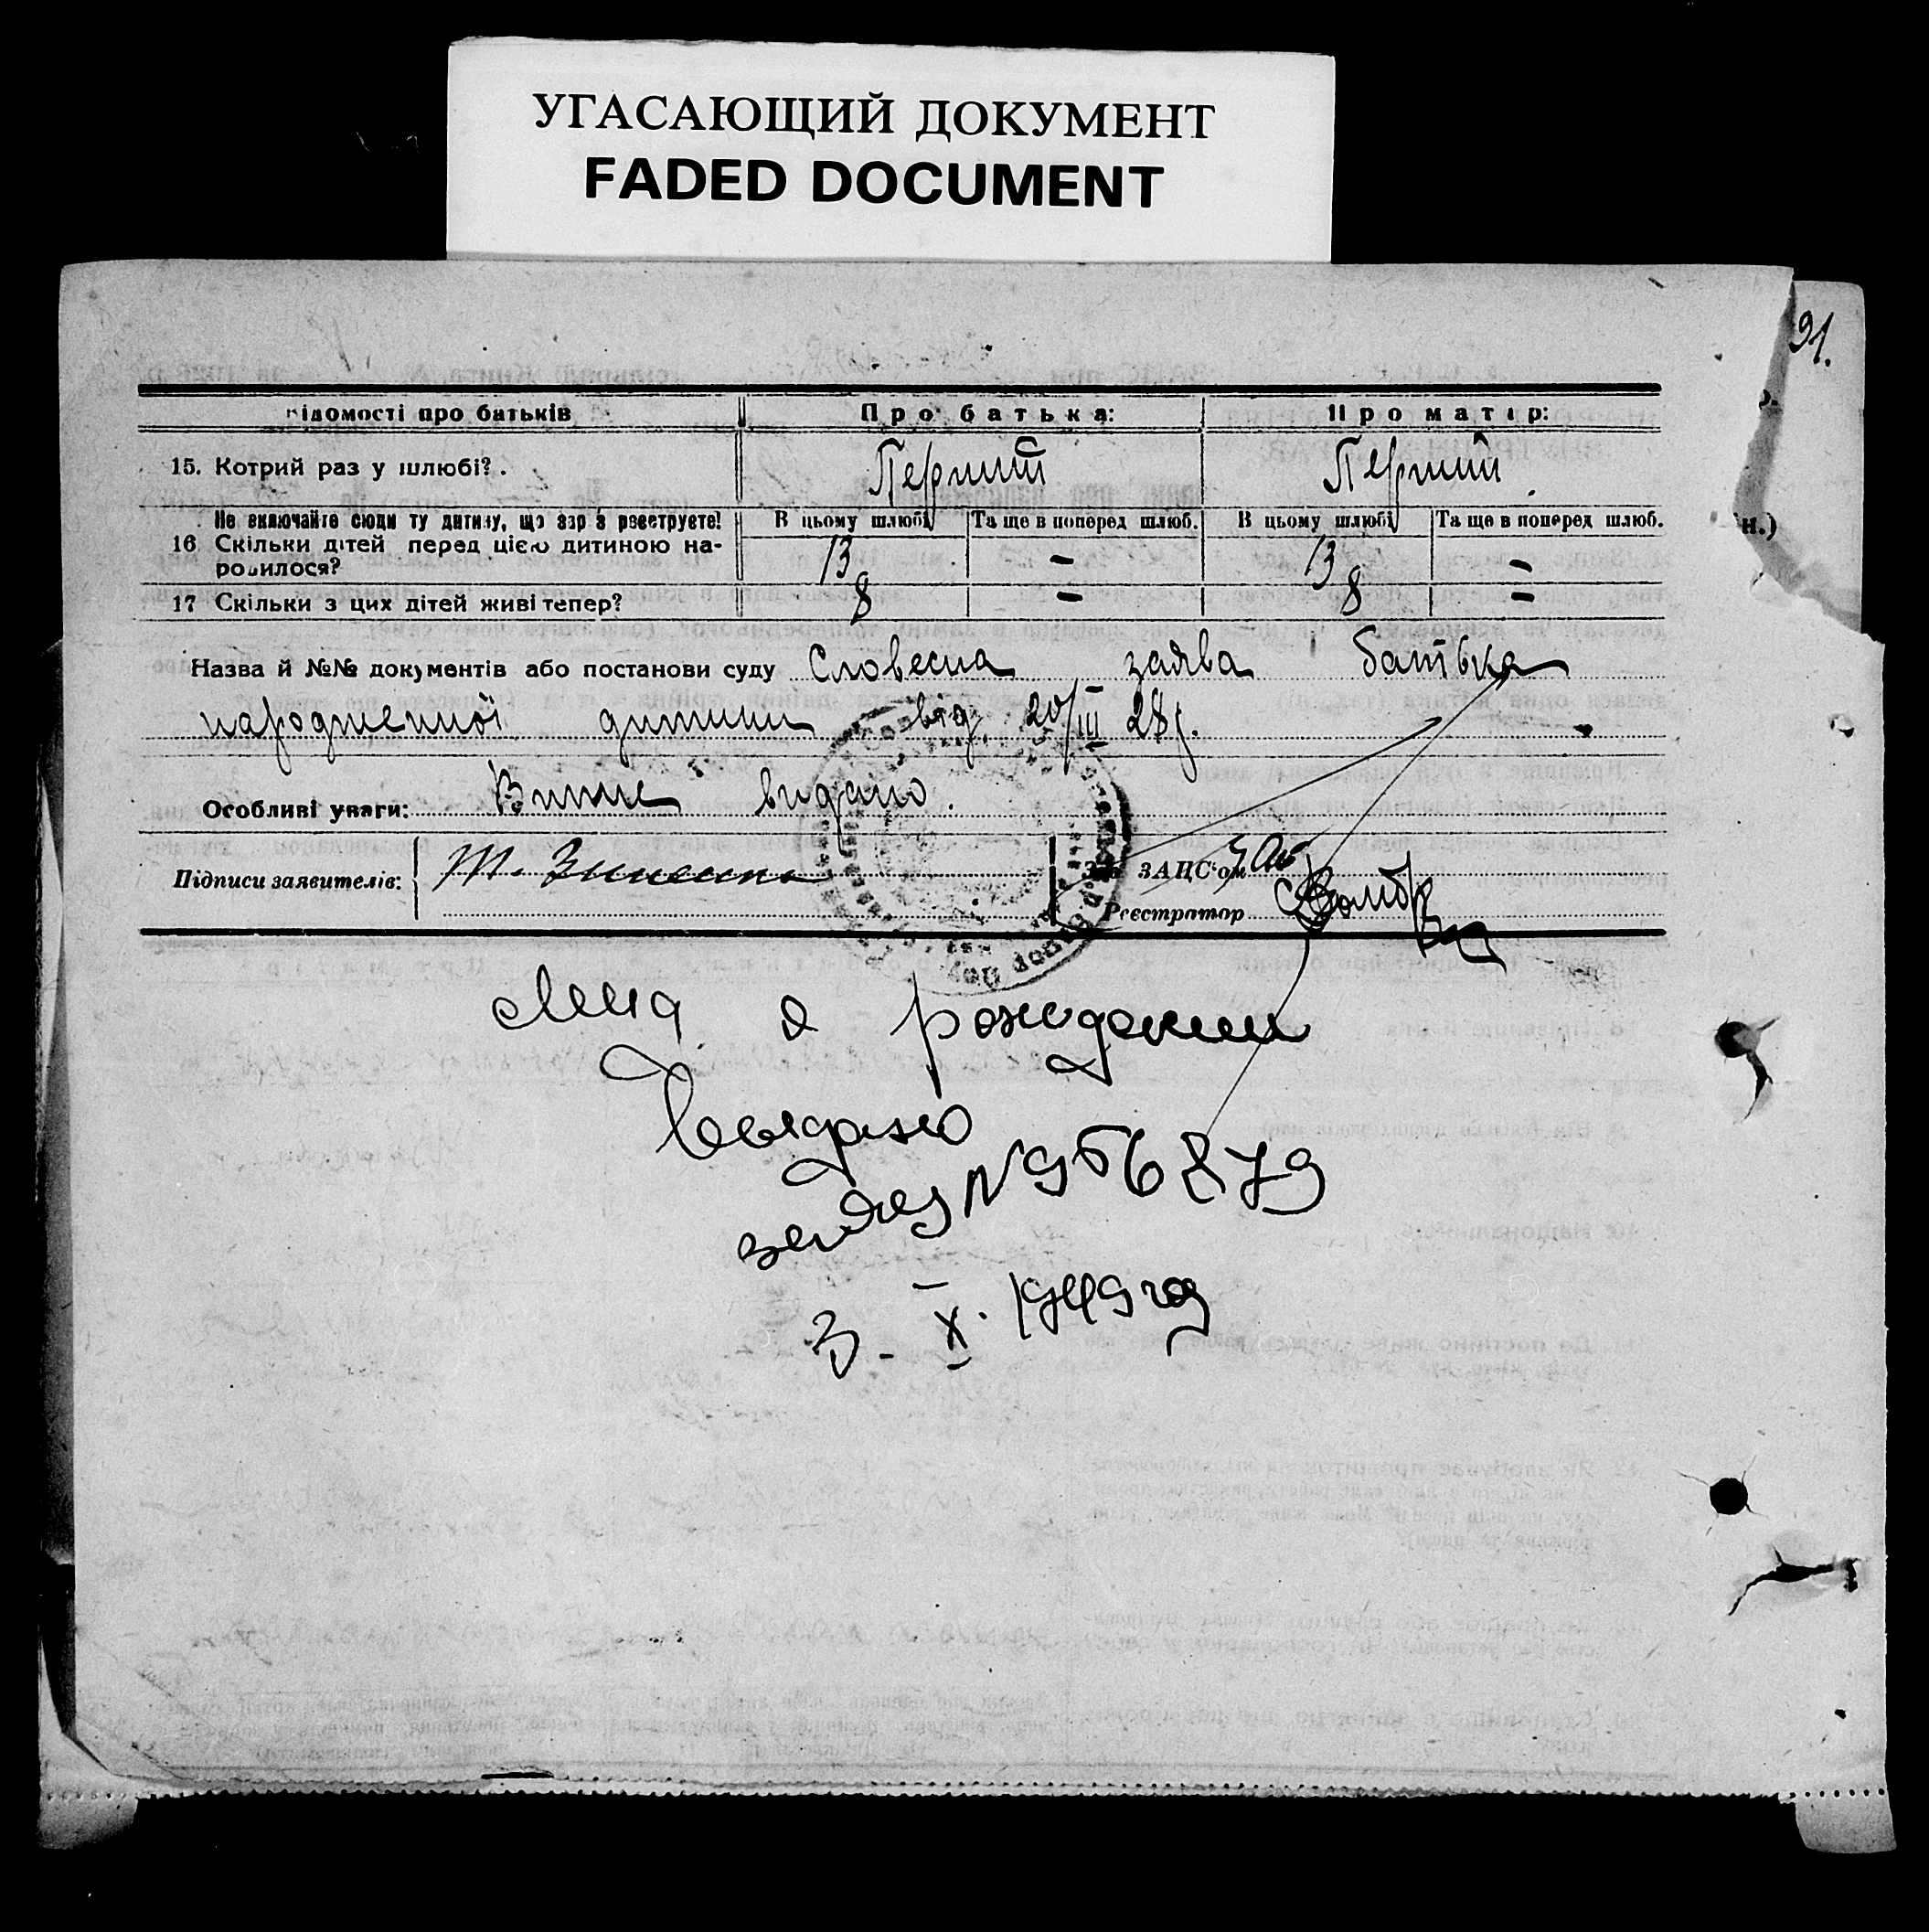 УГАСАЮЩИЙ ДОКУМЕНТ
FADED DOCUMENT
91.
відомості про батьків Про батька: Про матір:
15. Котрий раз у шлюбі? Перший Перший
Не включайте сюди ту дитину, що зараз реєструєте! В цьому шлюбі Та ще в поперед шлюб. В цьому шлюбі Та ще в поперед шлюб.
16 Скільки дітей перед цією дитиною на-
родилося? 13 – 13 –
17 Скільки з цих дітей живі тепер? 8 – 8 –
Назва й №№ документів або постанови суду Словесна заява батька
народженної дитини від 20/III 28 р.
Особливі уваги: Витяг видано.
Підписи заявителів: ЗАПС'ом
Реєстратор
о рождении
Выдано
N 956879
3 - X. 1949 года